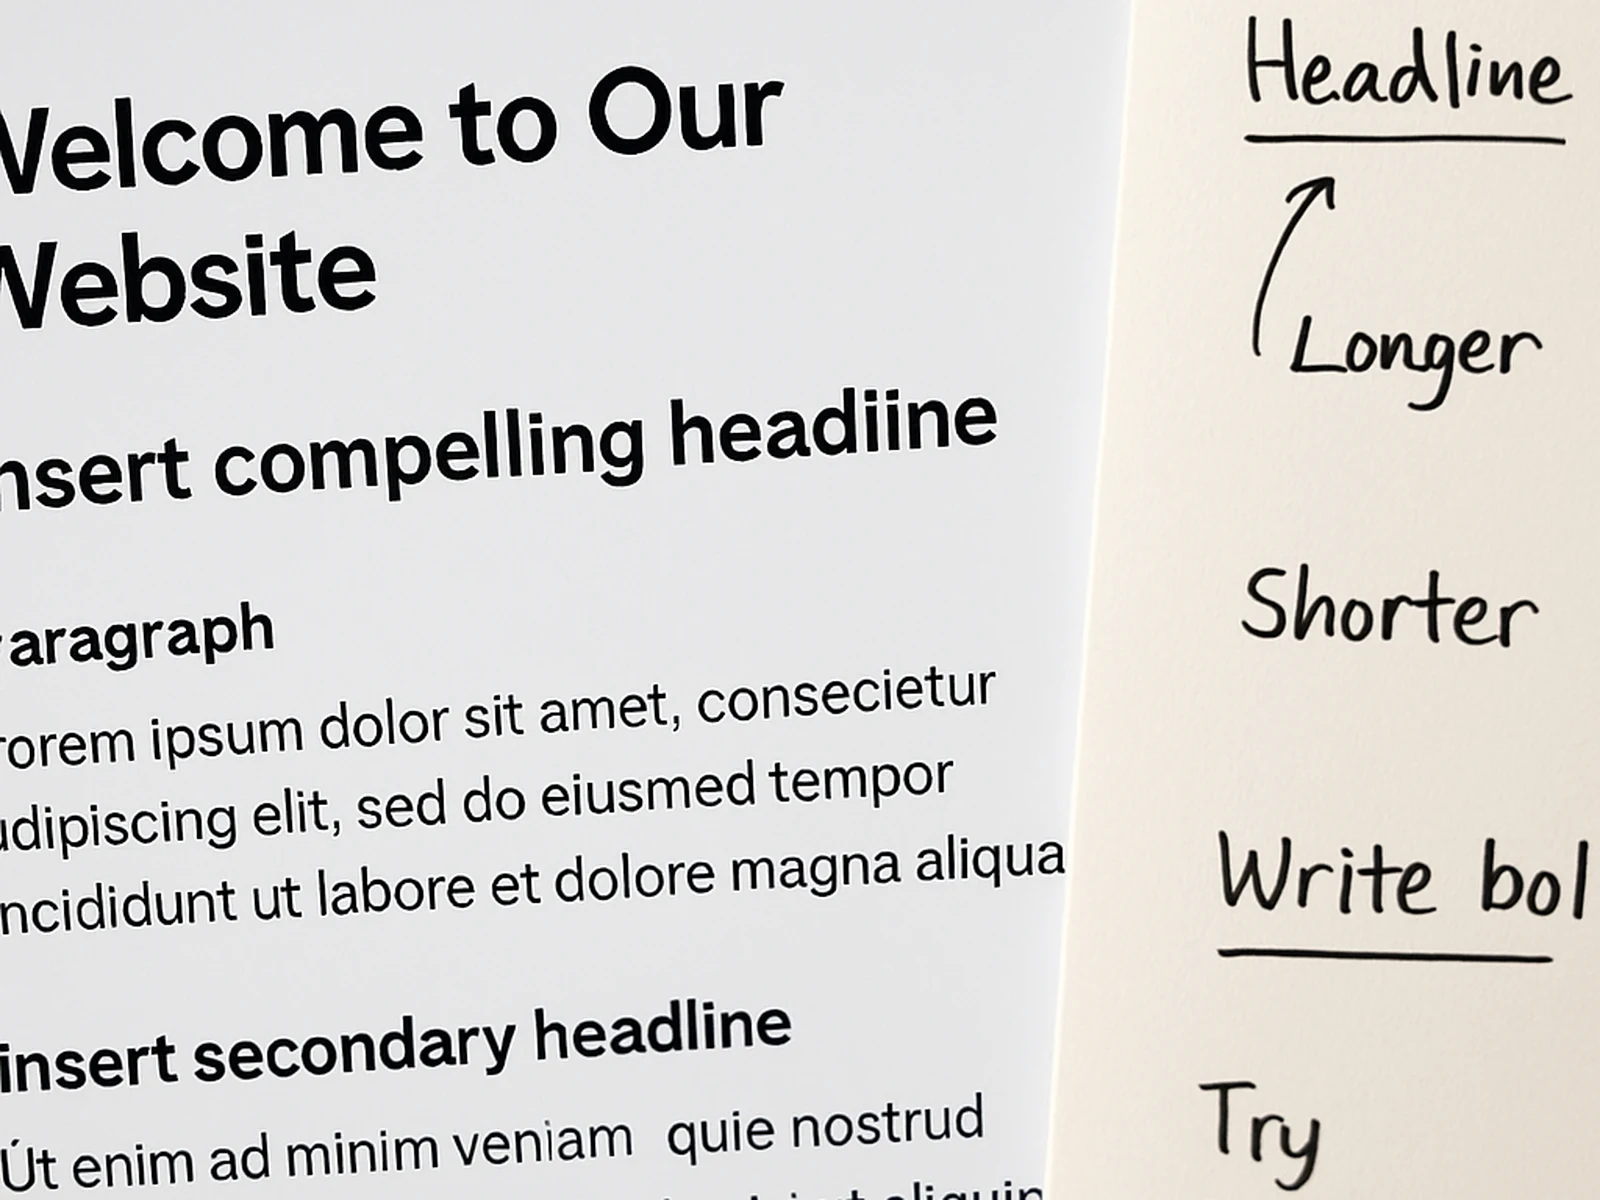 Welcome to Our
Website
nsert compelling headiine
aragraph
orem ipsum dolor sit amet, consecietur
dipiscing elit, sed do eiusmed tempor
ncididunt ut labore et dolore magna aliqua
insert secondary headline
Út enim ad minim veniam quie nostrud
Headline
Longer
Shorter
Write bol
Try